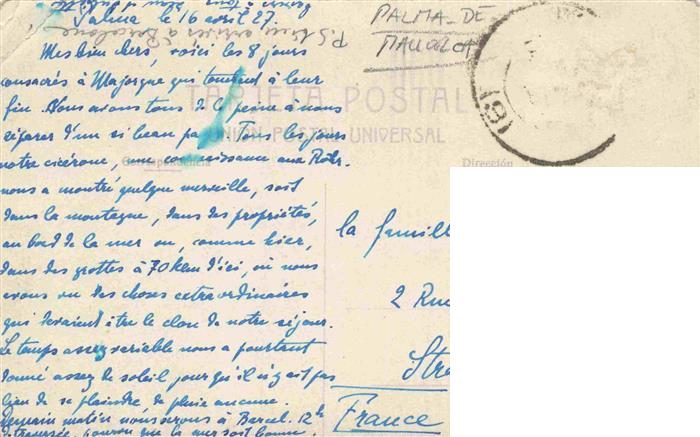 Palma le 16 avril 27.
P.S. arrivés à Barcelone
PALMA-DE
MALLORCA
Mes bien chers, voici les 8 jours
consacrés à Majorque qui touchent à leur
fin. Nous avons tous de la peine à nous
séparer d'un si beau pays. Tous les jours
notre cicérone, une connaissance aux Röhr.
nous a montré quelque merveille, soit
dans la montagne, dans des propriétés,
au bord de la mer ou, comme hier,
dans des grottes à 70 km d'ici, où nous
avons vu des choses extraordinaires
qui devaient être le clou de notre séjour.
Le temps assez variable nous a pourtant
donné assez de soleil pour qu'il n'y ait pas
lieu de se plaindre de pluie aucune.
Demain matin nous serons à Barcel. 12h
de traversée, pourvu que la mer soit bonne.
TARJETA POSTAL
UNION POSTAL UNIVERSAL
Correspondencia
Dirección
191
la famill
2 Rue
Stra
France